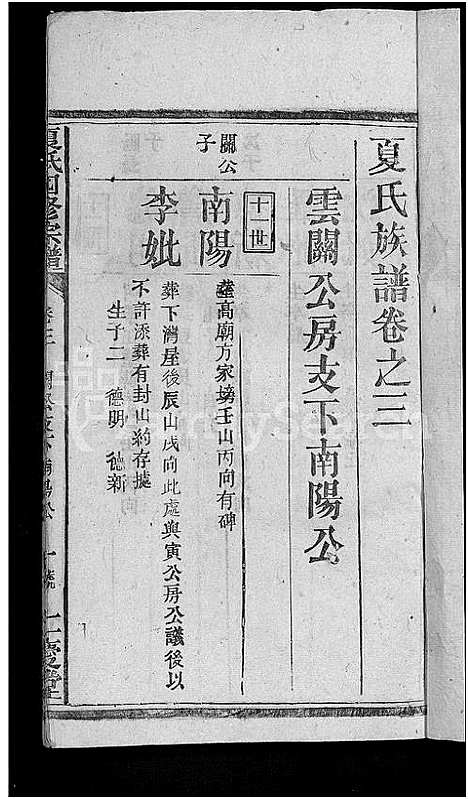 夏氏族譜卷之三
雲關公房支下南陽公
十一世
關公子
南陽
葬高廟方家塝壬山丙向有碑
李妣
葬下灣屋後辰山戌向此處與寅公房公議後以
不許添葬有封山約存據
生子二 德明 德新
夏氏四修宗譜
卷三 關公支下南陽公 一 號